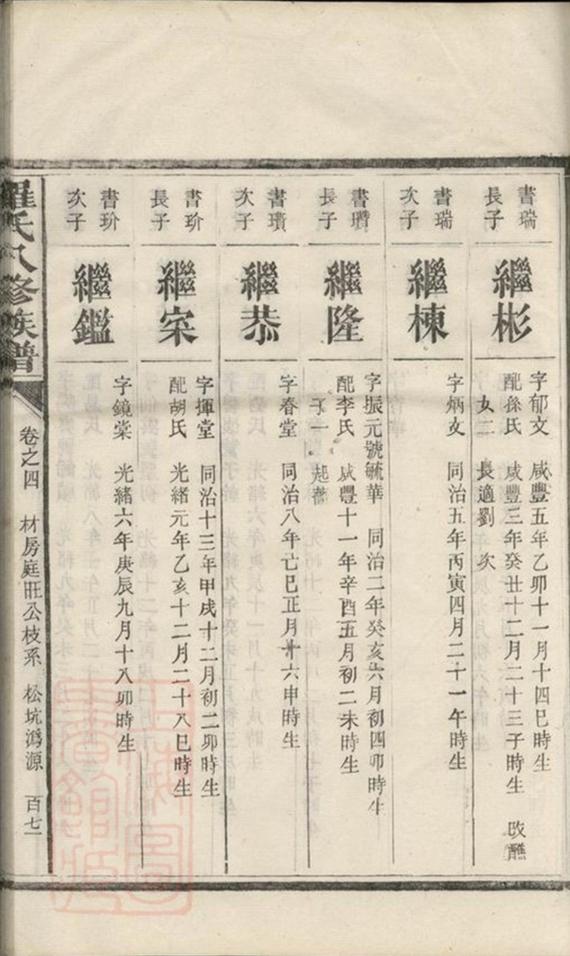 書瑞
長子
繼彬
字郁文 咸豐五年乙卯十一月十四巳時生
配孫氏 咸豐三年癸丑十二月二十三子時生 改醮
女二 長適劉 次
書瑞
次子
繼棟
字炳文 同治五年丙寅四月二十一午時生
書瓚
長子
繼隆
字振元號毓華 同治二年癸亥六月初四卯時生
配李氏 咸豐十一年辛酉五月初二未時生
子一 起蕃
書瓚
次子
繼恭
字春堂 同治八年亡巳正月十六申時生
書玠
長子
繼寀
字揮堂 同治十三年甲戌十二月初二卯時生
配胡氏 光緒元年乙亥十二月二十八巳時生
書玠
次子
繼鑑
字鏡棠 光緒六年庚辰九月十八卯時生
羅氏八修族譜 卷之四 材房庭旺公枝系 松坑溈源 百七一